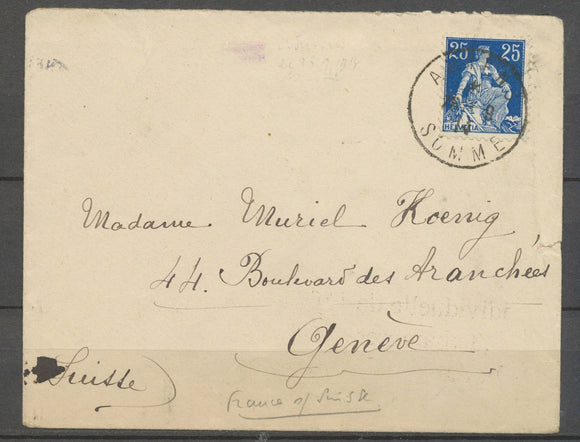 25 25
SOMME
Madame Muriel Koenig
44. Boulevard des Tranchées
Genève
Suisse
France of Suisse